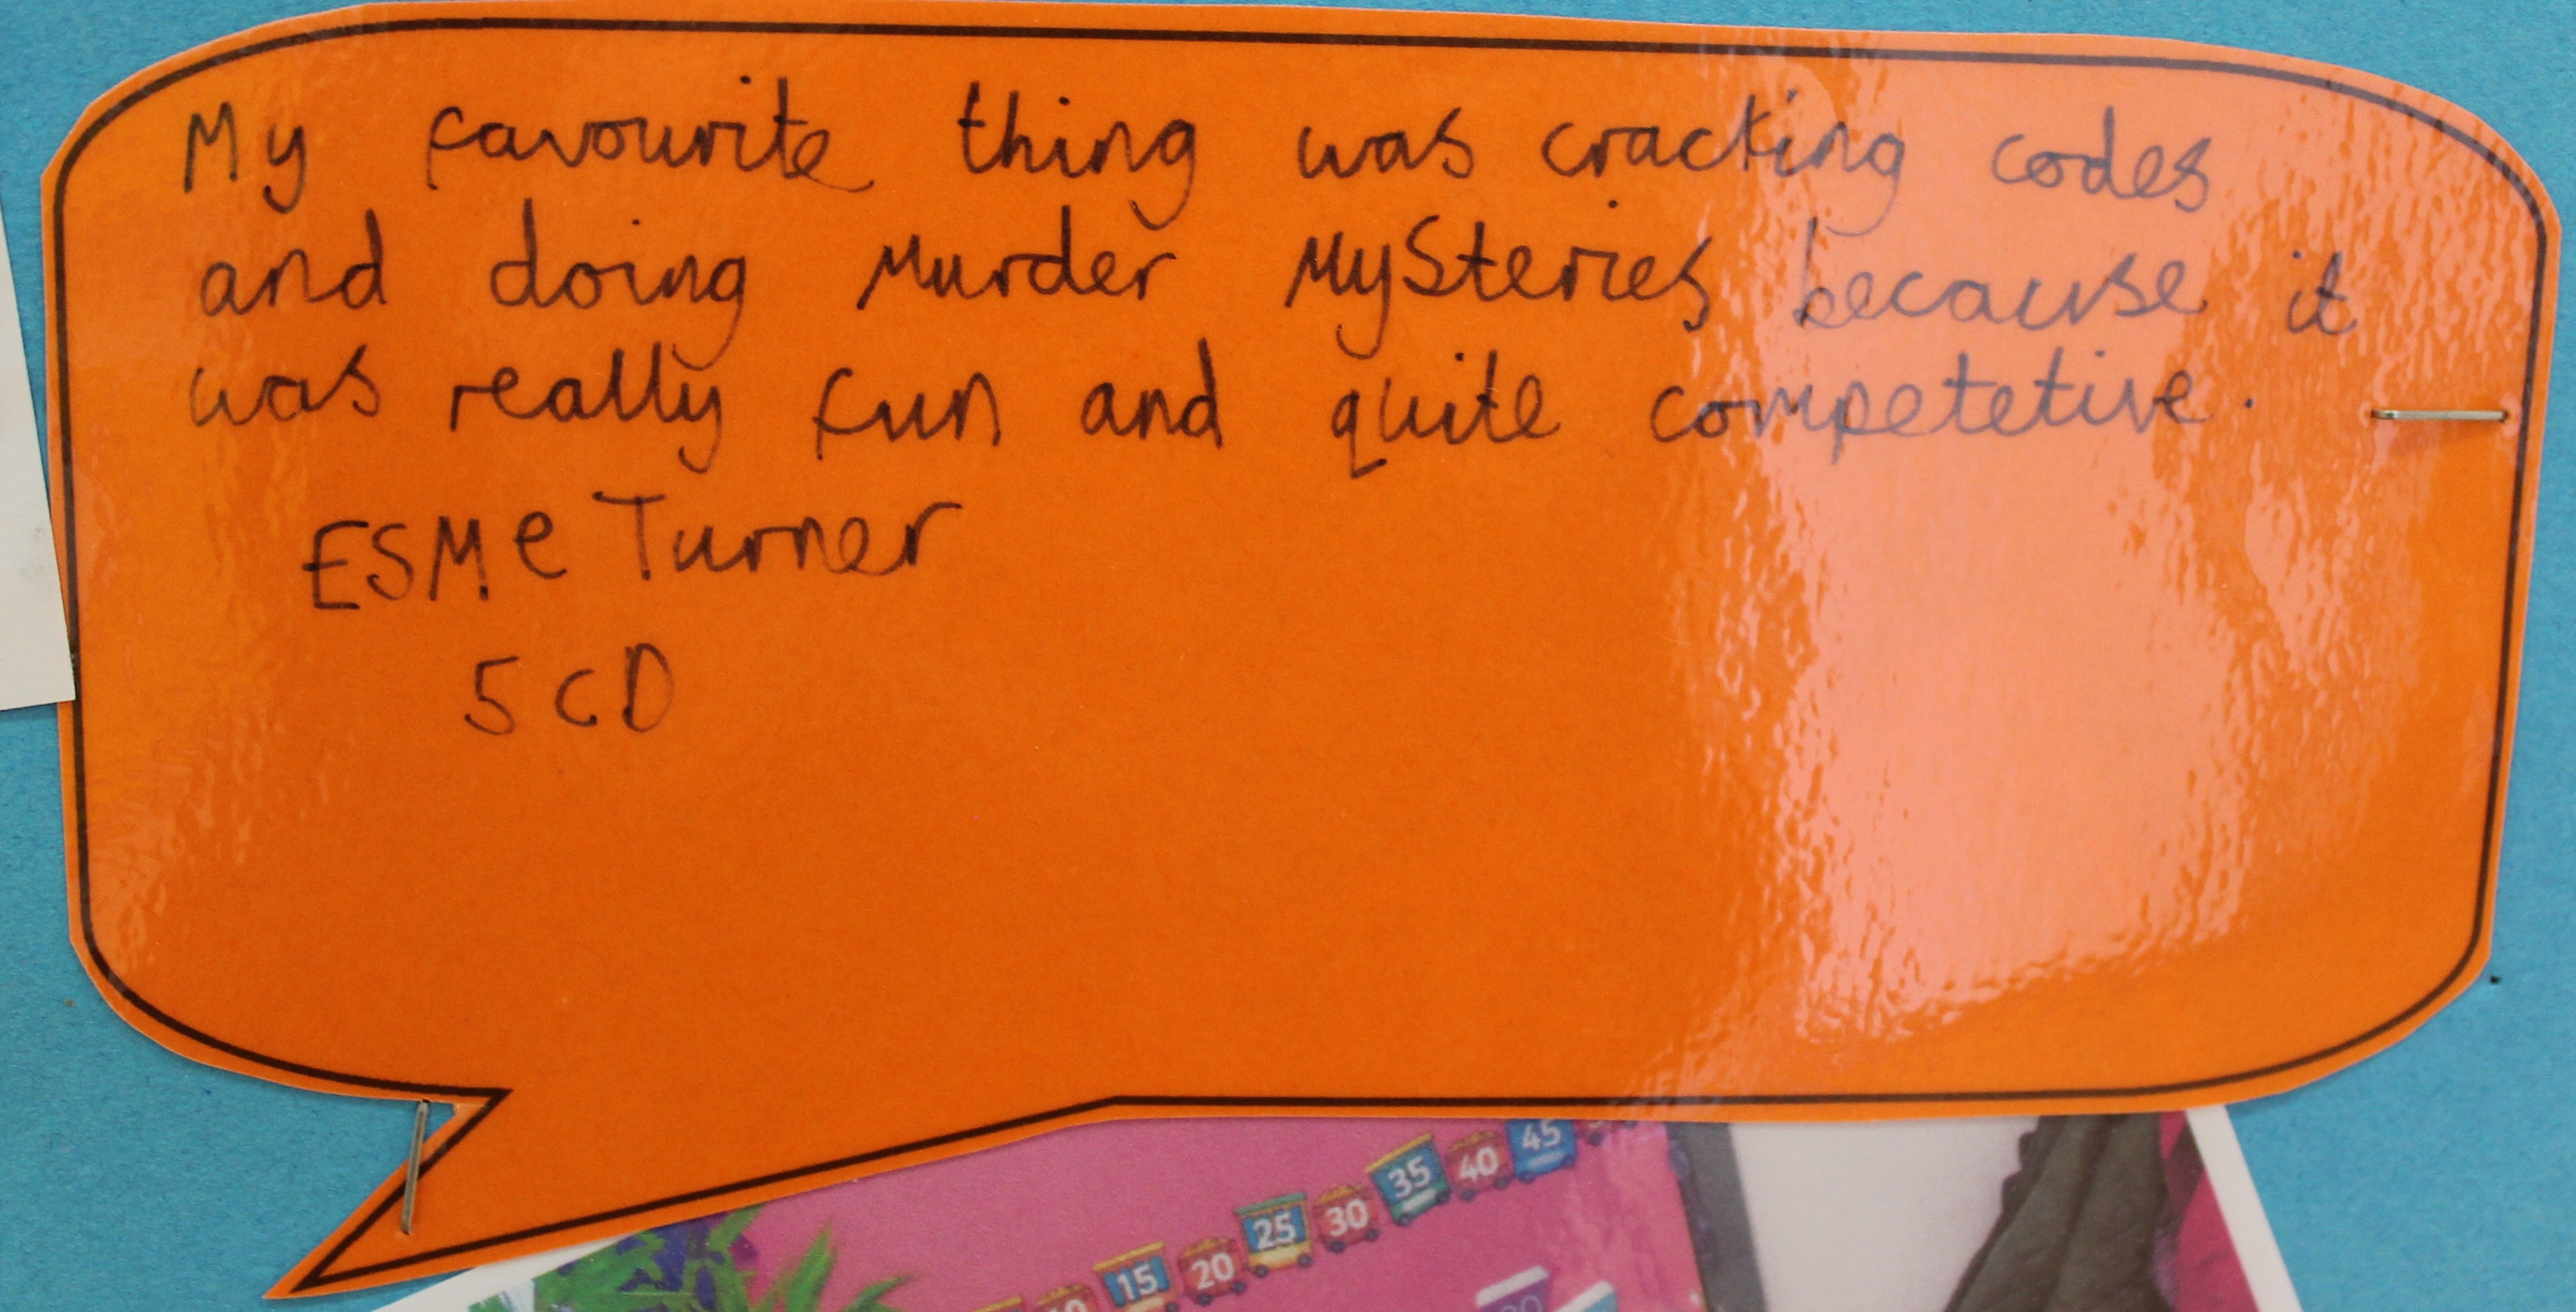 My favourite thing was cracking codes
and doing Murder MySteries because it
was really fun and quite competetive.
ESMe Turner
5 CD
15 20 25 30 35 40 45